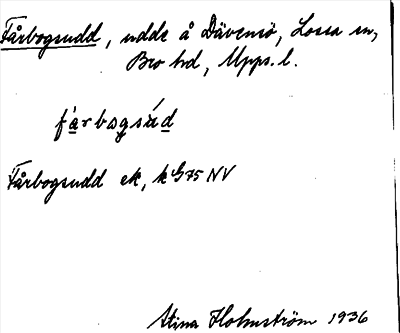 Fårbogsudd, udde å Dävensö, Lossa sn,
Bro hd, Upps. l.
fàrbogsúd
Fårbogsudd ek, k G75 NV
Stina Holmström 1936